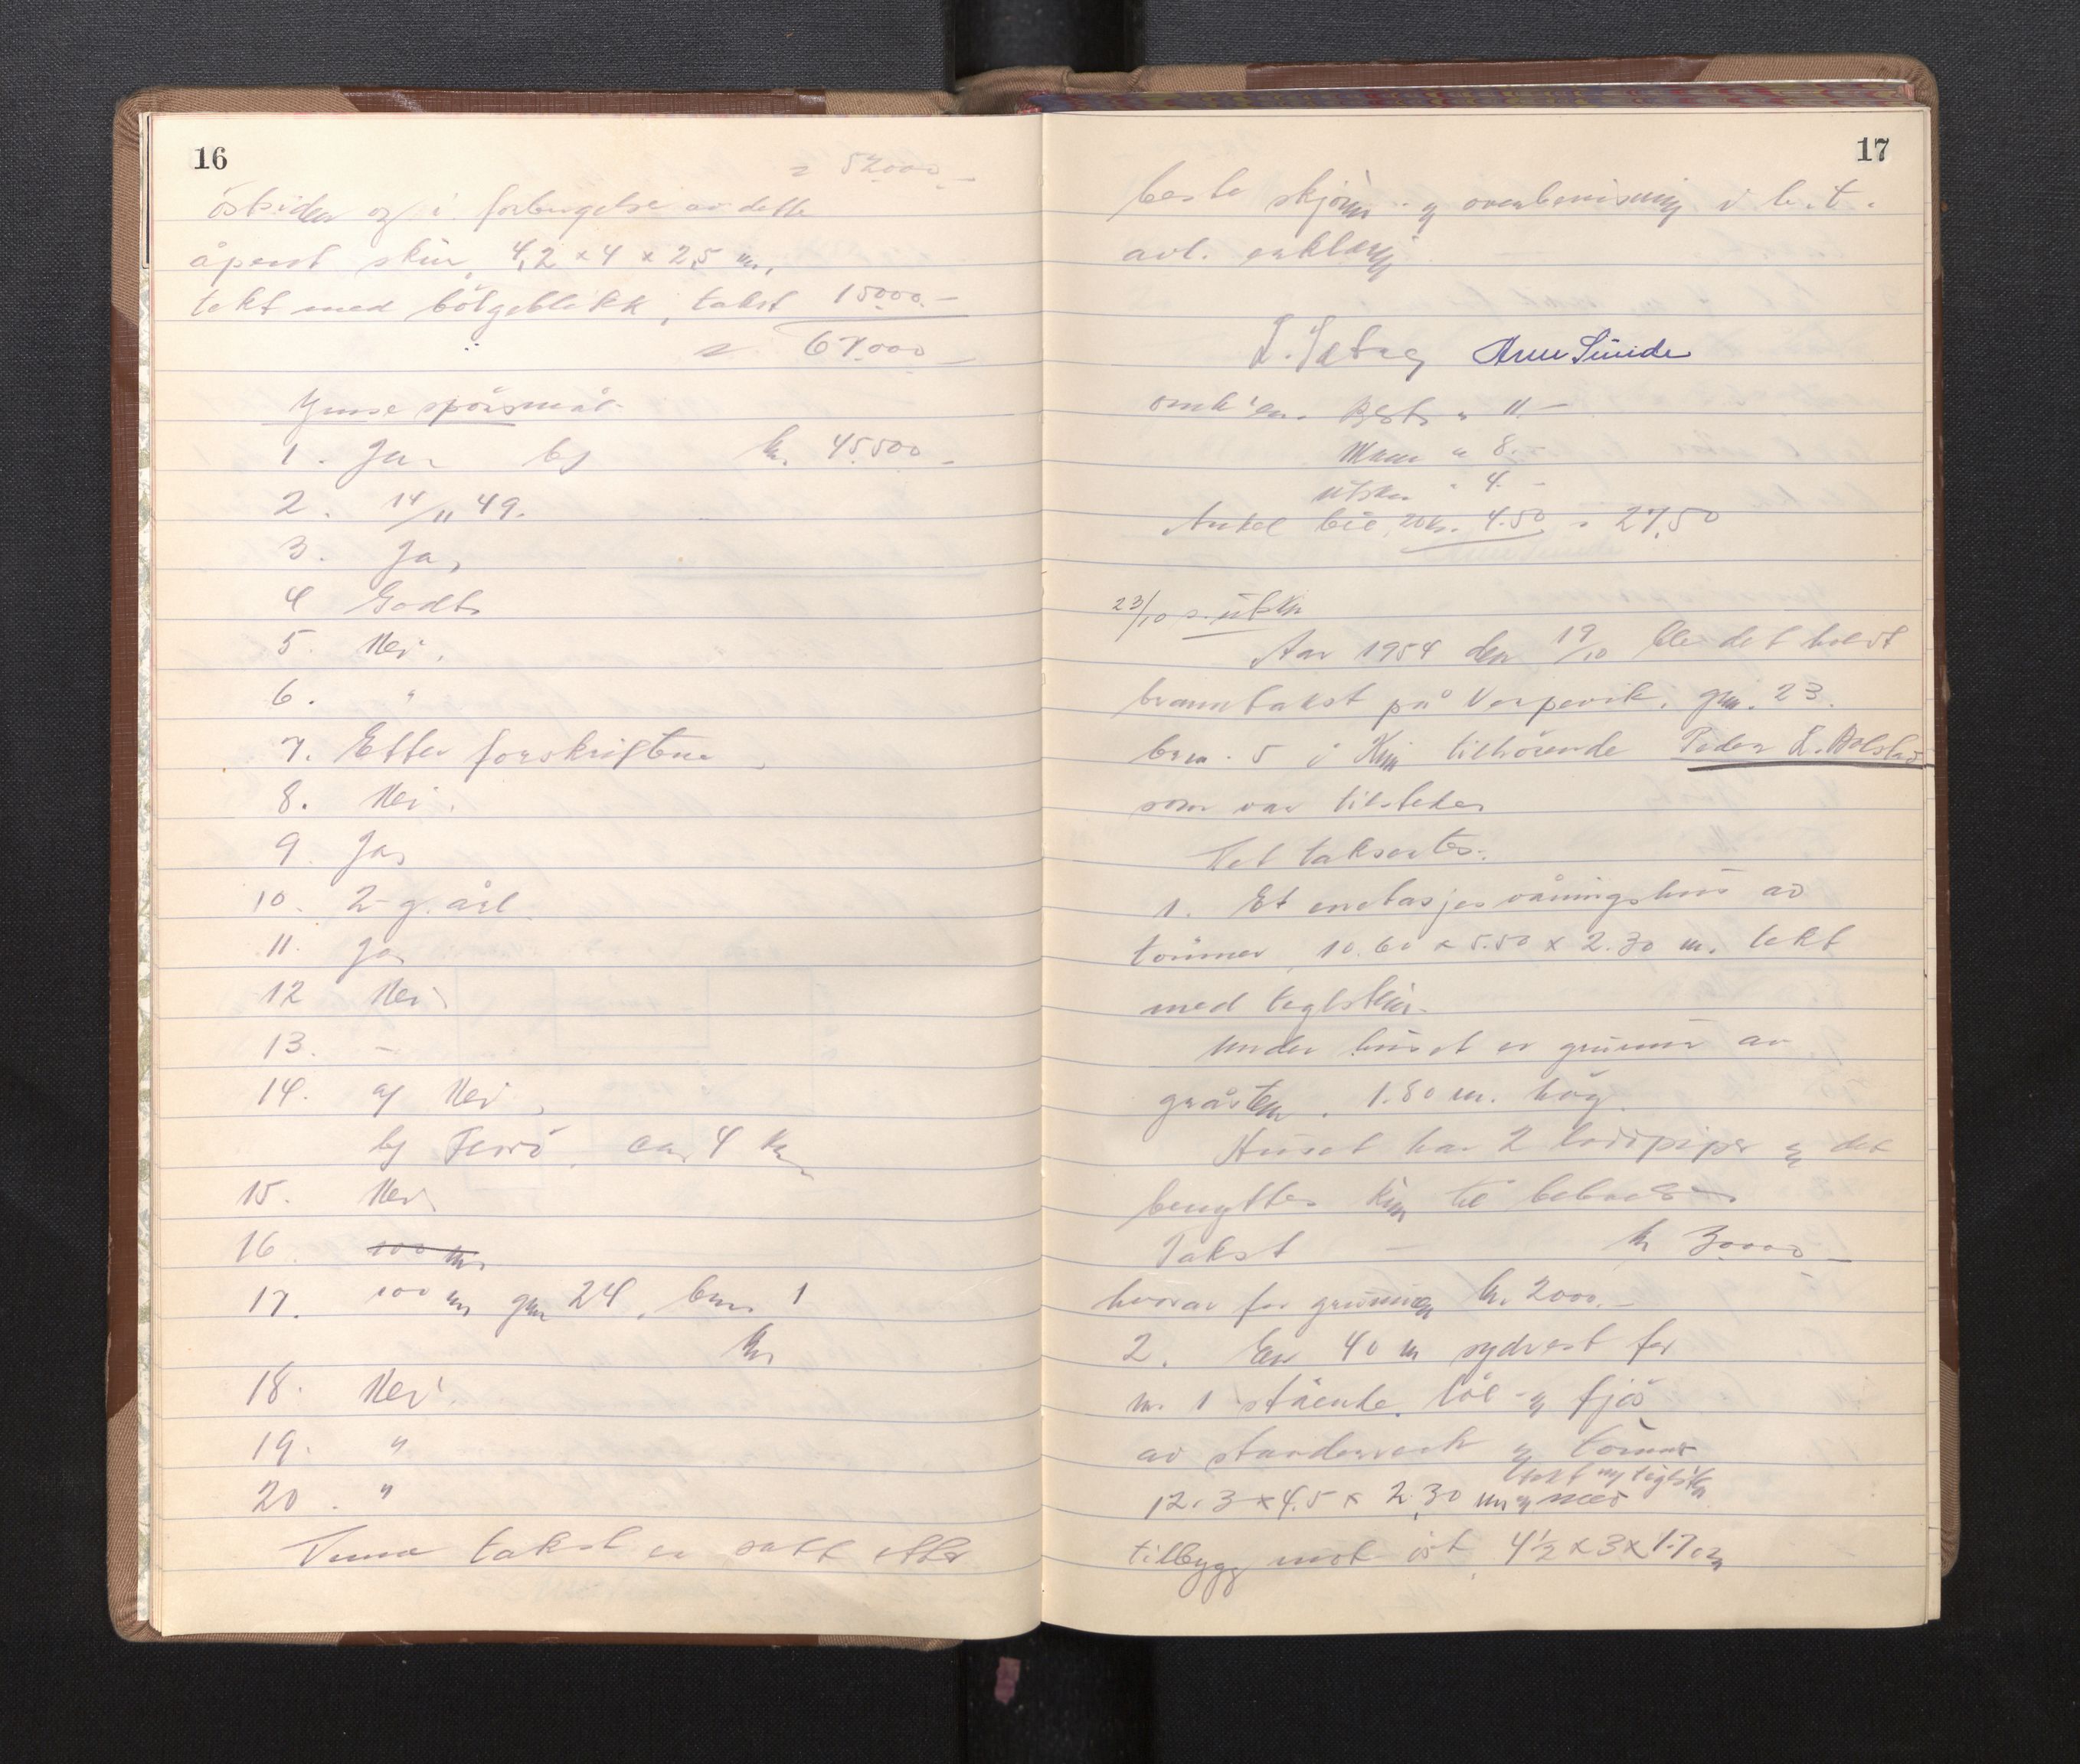 16
= 52000.-
östsiden og i forlengelse av dette
åpent skur, 4,2 x 4 x 2,5 m,
tekt med bölgeblekk, takst 15000.-
= 67.000-
Ymse spörsmål
1. Ja. b) kr. 45500-
2. 14/11 49.
3. Ja,
4 Godt
5. Nei,
6. "
7. Etter forskriftene
8. Nei.
9. Ja,
10. 2 g. årl.
11. Ja
12 Nei
13. -
14. a) Nei,
b) Florö, ca 4 km
15. Nei
16. 100 m
17. 100 m gnr 24, bnr 1
Kr
18. Nei.
19. "
20. "
Denne takst er satt etter
17
beste skjönn og overbevisning i h.t.
avl. erklæring
L. Sætrey Arne Sunde
omk'er. Best. " 11.-
Mann " 8.-
utskr. " 4.-
Ankel bil, 20 k. 4.50 = 27,50
23/10 s. utskr
Aar 1954 den 19/10 ble det holdt
branntakst på Varpevik, gnr. 23.
bnr. 5 i Kinn tilhörende Peder L. Bolstad
som var tilstede
Det taksertes:
1. Et enetasjes våningshus av
tömmer 10.60 x 5.50 x 2.30 m. tekt
med teglstein.
Under huset er grunnmur av
gråsten. 1.80 m. hög.
Huset har 2 lovpiper og det
benyttes kun til beboelse
Takst - kr 30000-
hvorav for grunnmuren kr. 2000.-
2. En 40 m sydvest for
nr. 1 stående löe og fjös
av standerverk og tömmer
tekt m/ teglsten
12.3 x 4.5 x 2.30 m og med
tilbygg mot öst 4 1/2 x 3 x 1.70 m